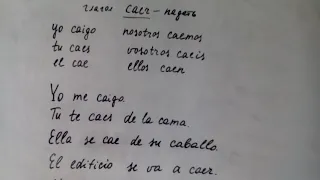 глагол caer - падать
yo caigo nosotros caemos
tu caes vosotros caeis
el cae ellos caen
Yo me caigo.
Tu te caes de la cama.
Ella se cae de su caballo.
El edificio se va a caer.